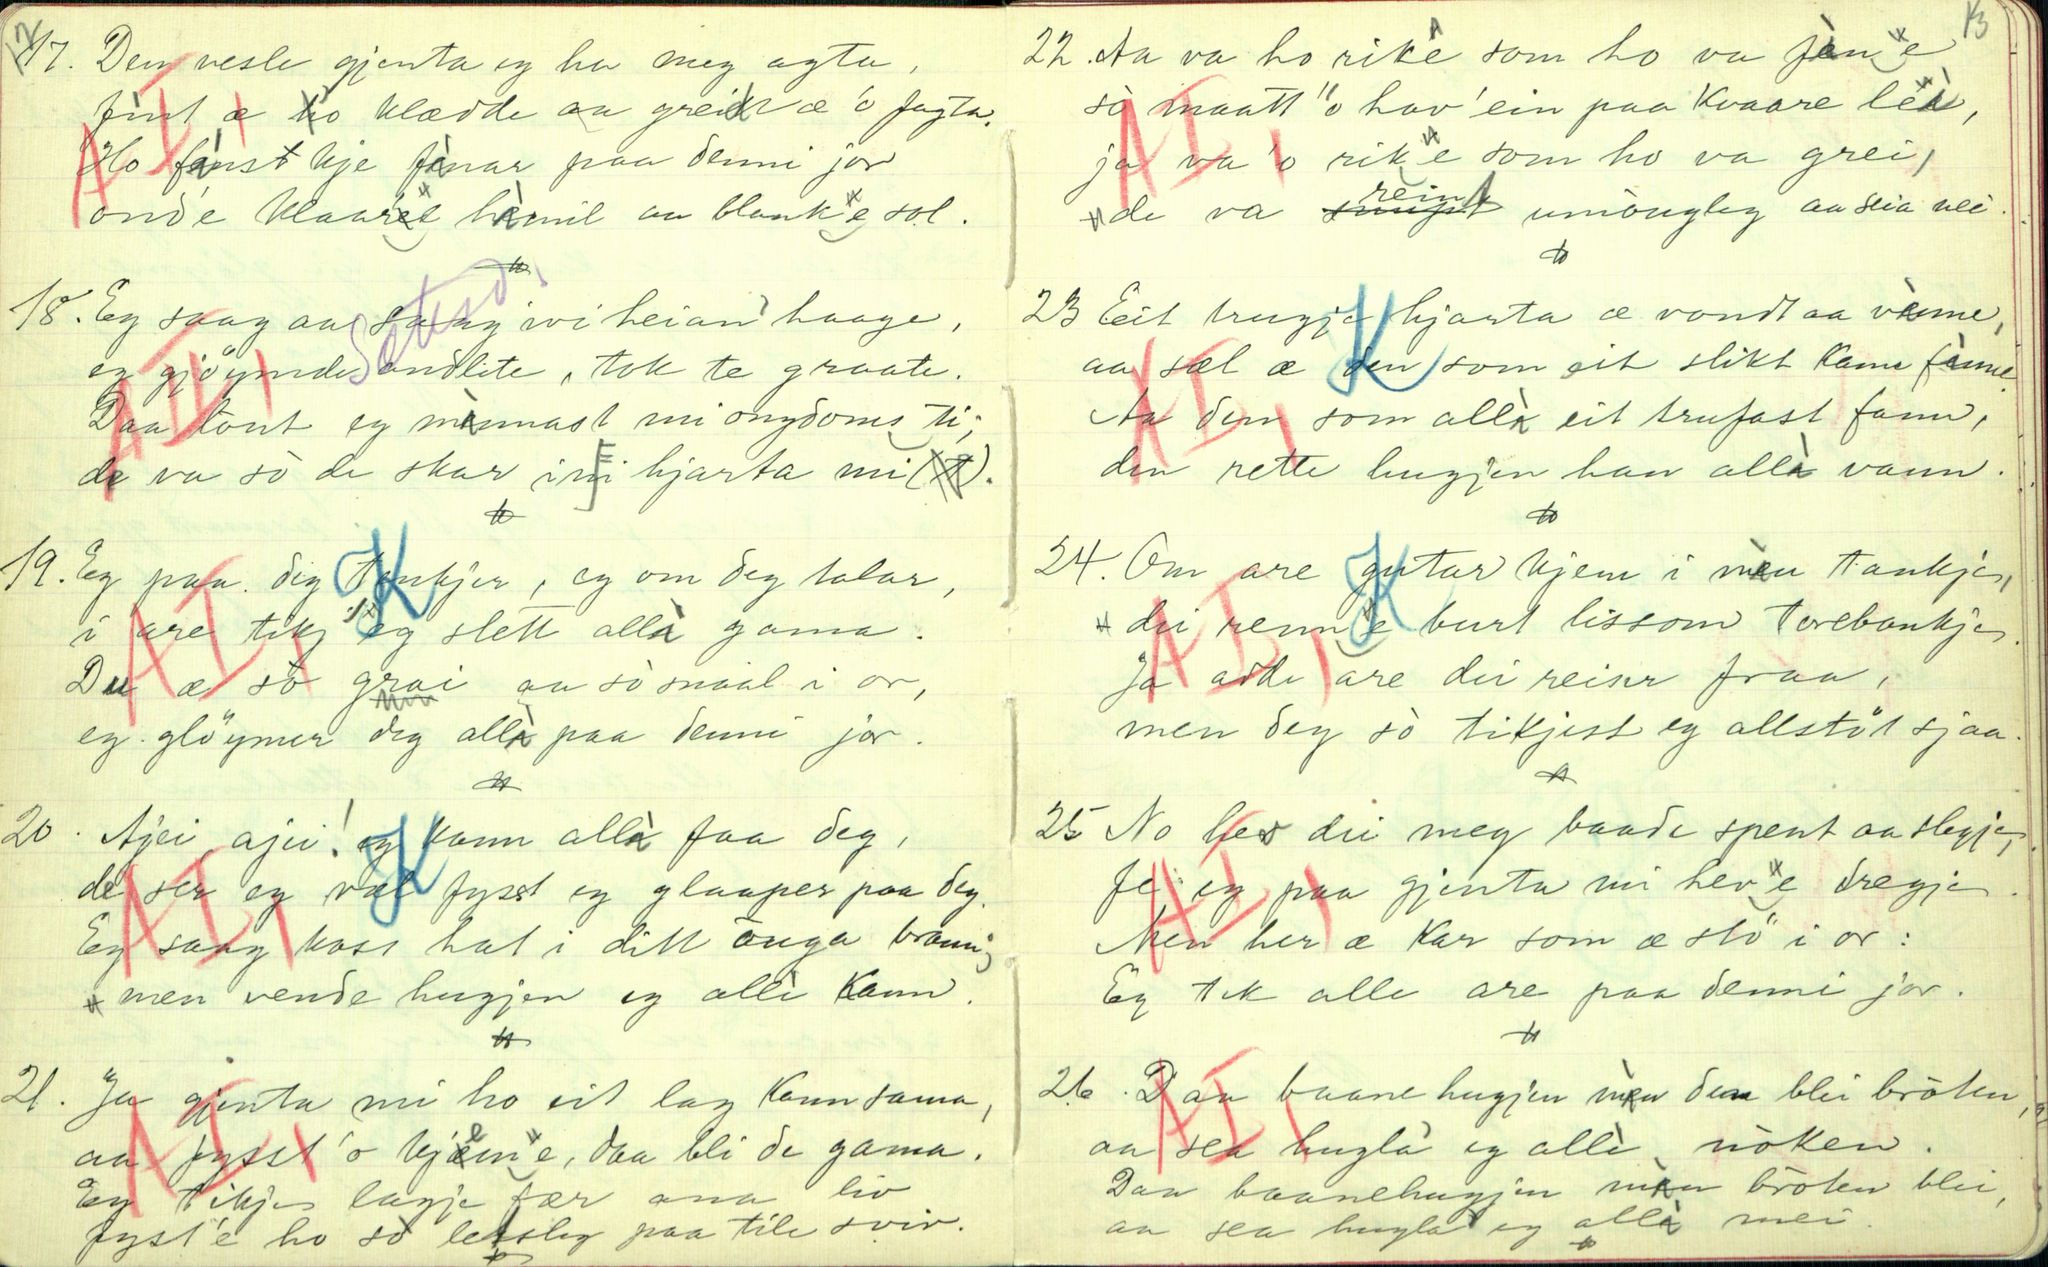 12
17. Den vesle gjenta eg ha meg agta,
fint æ ho klædde aa greidt æ 'o fagta.
Ho finst kje finar paa denni jor
ond'e klaare himil aa blank'e sol.
18. Eg saag aa saag ivi heian haage,
eg gjöymde andlite, tok te graate.
Daa tont eg minnast mi ongdoms ti;
de va sò de skar i hjarta mi(t).
Setesd.
19. Eg paa deg tenkjer, eg om deg talar,
i are tikj eg slett alli gama.
Du æ sò grei aa sò snial i or,
eg glöymer deg alli paa denni jor.
20. Ajei, ajei! eg kann alli faa deg,
de ser eg væl fysst eg glaaper paa deg.
Eg saag kass hat i ditt auga brann;
men vende hugjen eg alli kann.
21. Ja gjenta mi ho eit lag kann sama,
aa fysst 'o kjem'e, daa bli de gama.
Eg tikjes lagje fær ana liv
fyst'e ho sò letsleg paa tile sviv.
13
22. Aa va ho rike som ho va fin'e
sò maatt 'o hav' ein paa kvaare lei,
ja va 'o rik'e som ho va grei,
de va reint umöugleg aa seia nei.
23 Eit trugje hjarta æ vondt aa vinne,
aa sæl æ den som eit slikt kann finne.
Aa den som alli eit trufast fann,
den rette hugjen han alli vann.
24. Om are gutar kjem i min tankje,
dei renn'e burt lissom torebankje.
Ja adde are dei reiser fraa,
men deg sò tikjest eg allstöt sjaa.
25 No hev dei meg baade spent aa slegje,
fe eg paa gjenta mi hev'e dregje.
Men her æ kar som æ stö i or:
Eg tek alle are paa denni jor.
26. Daa baanehugjen min den blei bròten,
aa sea huglà eg alli nòken.
Daa baanehugjen min bròten blei,
aa sea huglà eg alli mei.
AI, AI, AI, AI, AI, AI, AI, AI, AI, AI,
K K K K